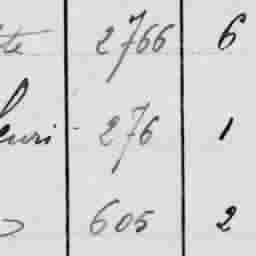 te 2766 6
euri - 276 1
605 2